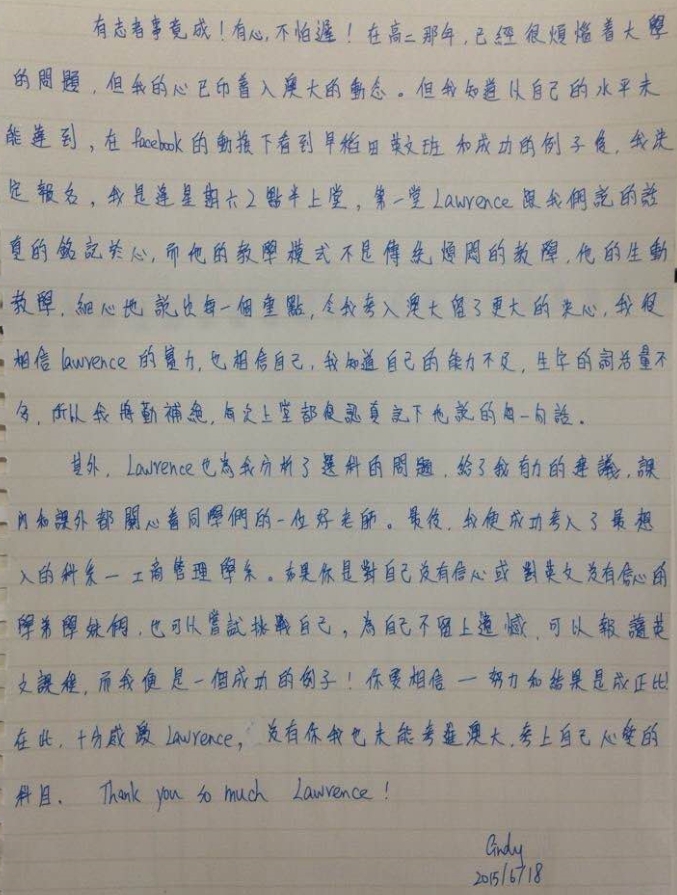 有志者事竟成！有心，不怕遲！在高二那年，已經很煩惱着大學
的問題，但我的心已印着入澳大的動态。但我知道以自己的水平未
能達到，在facebook的動態下看到早稻田英文班和成功的例子後，我決
定報名，我是逢星期六2點半上堂，第一堂Lawrence跟我們說的話
真的銘記於心，而他的教學模式不是傳統煩悶的教學，他的生動
教學，細心地說出每一個重點，令我考入澳大留了更大的決心，我很
相信lawrence的實力，也相信自己，我知道自己的能力不足，生字的詞活量不
多，所以我將勤補絀，每次上堂都很認真記下他說的每一句話。
其外，Lawrence也為我分析了選科的問題，給了我有力的建議，課
內和課外都關心着同學們的一位好老師。最後，我便成功考入了最想
入的科系—工商管理學系。如果你是對自己沒有信心或對英文沒有信心的
學弟學妹們，也可以嘗試挑戰自己，為自己不留上遺憾，可以報讀英
文課程，而我便是一個成功的例子！你要相信—努力和結果是成正比！
在此，十分感激Lawrence，沒有你我也未能考進澳大，考上自己心愛的
科目。 Thank you so much Lawrence！
Cindy
2015/6/18